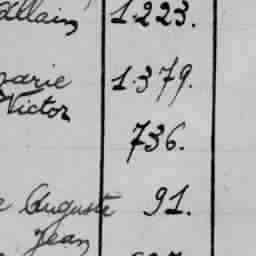 allain 1.223.
marie 1.379.
Victor
736.
Auguste 91.
Jean